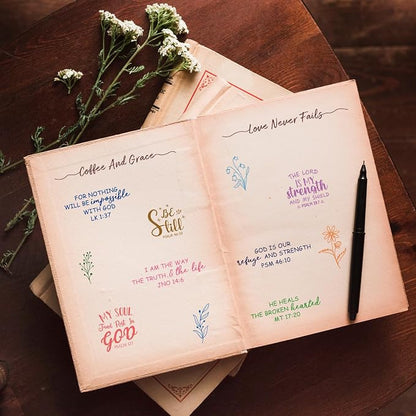 Coffee And Grace
FOR NOTHING
WILL BE impossible
WITH GOD
LK 1:37
BE
Still
PSALM 46:10
I AM THE WAY
THE TRUTH, & the life
JNO 14:6
MY SOUL
Find Rest In
GOD
PSALM
Love Never Fails
THE LORD
IS MY
strength
AND MY SHIELD
PSALM 28:7
GOD IS OUR
refuge AND STRENGTH
PSM 46:10
HE HEALS
THE BROKEN hearted
MT. 17:20